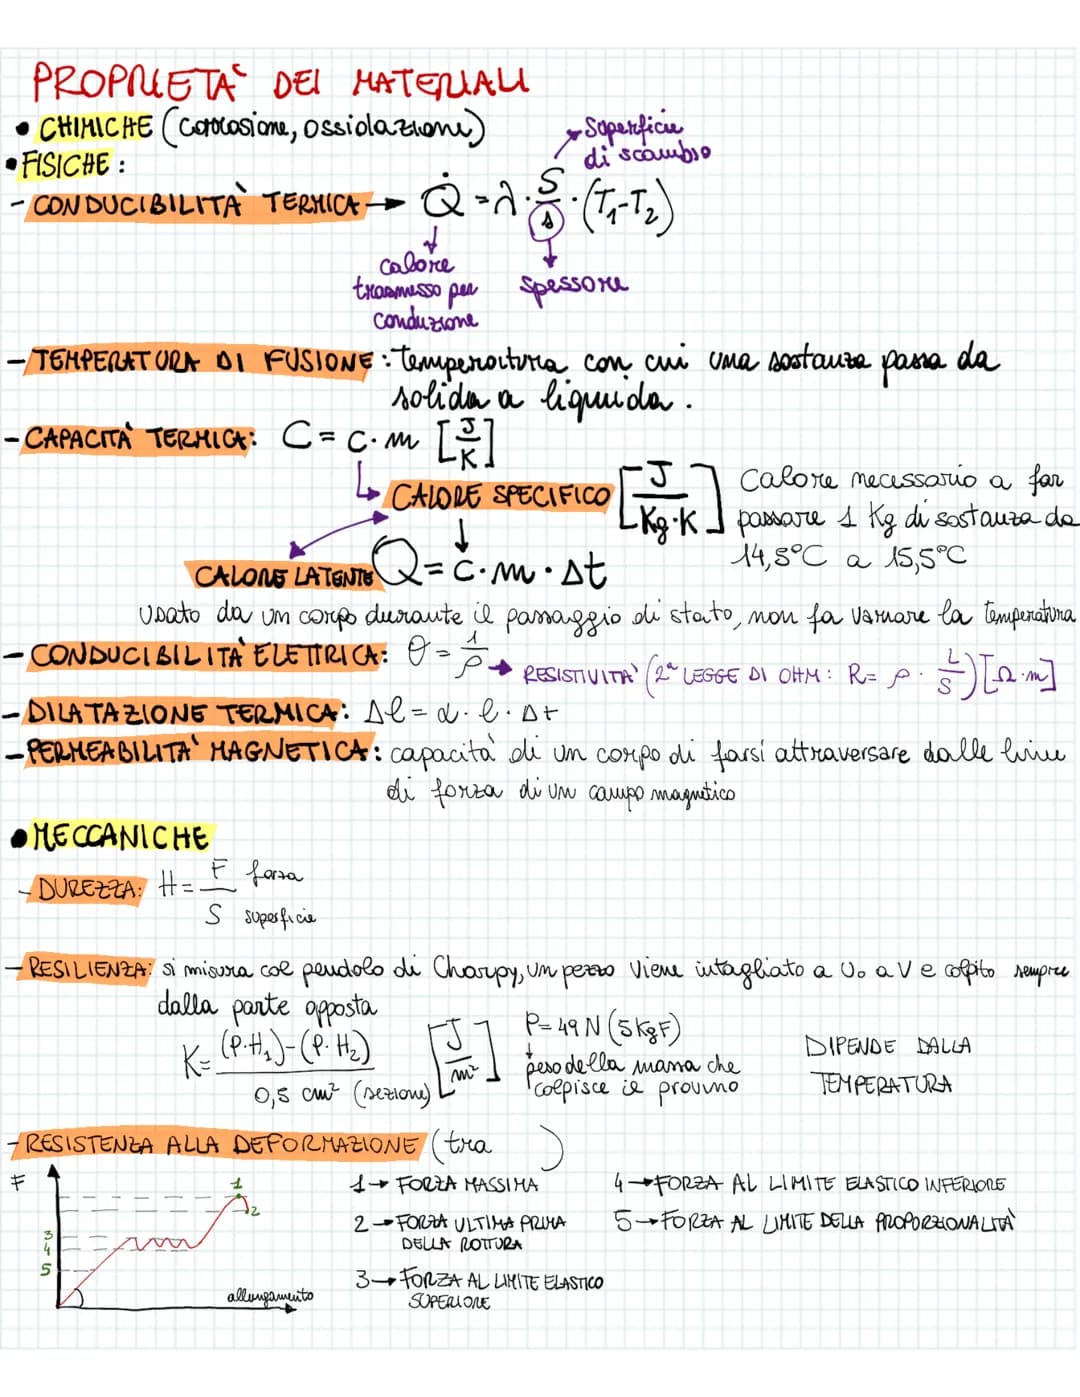 PROPRIETA' DEI MATERIALI
• CHIMICHE (corrosione, ossidazione)
• FISICHE:
Superficie
di scambio
- CONDUCIBILITÀ TERMICA → Q̇ = λ · S/s · (T₁-T₂)
calore
trasmesso per
conduzione
spessore
- TEMPERATURA DI FUSIONE: temperatura con cui una sostanza passa da
solida a liquida.
- CAPACITÀ TERMICA: C = c · m [J/K]
CALORE SPECIFICO [J/Kg·K]
Calore necessario a far
passare 1 Kg di sostanza da
14,5°C a 15,5°C
CALORE LATENTE Q = c · m · Δt
Usato da un corpo durante il passaggio di stato, non fa variare la temperatura
- CONDUCIBILITÀ ELETTRICA: θ = 1/ρ → RESISTIVITA' (2ª LEGGE DI OHM: R = ρ · L/S) [Ω·m]
- DILATAZIONE TERMICA: Δl = α · l · Δt
- PERMEABILITA' MAGNETICA: capacità di un corpo di farsi attraversare dalle linee
di forza di un campo magnetico
• MECCANICHE
- DUREZZA: H = F/S forza
superficie
- RESILIENZA: si misura col pendolo di Charpy, un pezzo viene intagliato a U o a V e colpito sempre
dalla parte opposta
K = (P·H₁)-(P·H₂) / 0,5 cm² (sezione) [J/m²]
P = 49 N (5 KgF)
peso della massa che
colpisce il provino
DIPENDE DALLA
TEMPERATURA
- RESISTENZA ALLA DEFORMAZIONE (tra )
F
1
2
3
4
5
allungamento
1 → FORZA MASSIMA
2 → FORZA ULTIMA PRIMA
DELLA ROTTURA
3 → FORZA AL LIMITE ELASTICO
SUPERIORE
4 → FORZA AL LIMITE ELASTICO INFERIORE
5 → FORZA AL LIMITE DELLA PROPORZIONALITÀ